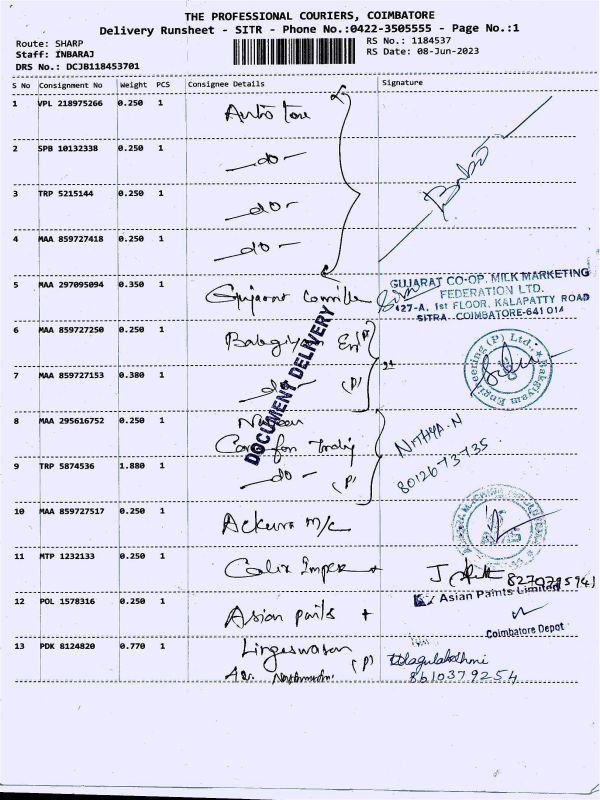 THE PROFESSIONAL COURIERS, COIMBATORE
Delivery Runsheet - SITR - Phone No.:0422-3505555 - Page No.:1
Route: SHARP
Staff: INBARAJ
DRS No.: DCJB118453701
RS No.: 1184537
RS Date: 08-Jun-2023
S No Consignment No Weight PCS Consignee Details Signature
1 VPL 218975266 0.250 1
2 SPB 10132338 0.250 1 -do-
3 TRP 5215144 0.250 1 -do-
4 MAA 859727418 0.250 1 -do-
5 MAA 297095094 0.350 1 Gujarat
GUJARAT CO-OP. MILK MARKETING
FEDERATION LTD.
427-A, 1st FLOOR, KALAPATTY ROAD
SITRA, COIMBATORE-641 014
6 MAA 859727250 0.250 1
7 MAA 859727153 0.380 1 -do- (P)
DOCUMENT DELIVERY
8 MAA 295616752 0.250 1
NITHYA.N
80126-73735
9 TRP 5874536 1.880 1 -do- (P)
10 MAA 859727517 0.250 1 m/c
11 MTP 1232133 0.250 1
12 POL 1578316 0.250 1 Asian
Asian Paints Limited
Coimbatore Depot
13 PDK 8124820 0.770 1 (P)
8610379254